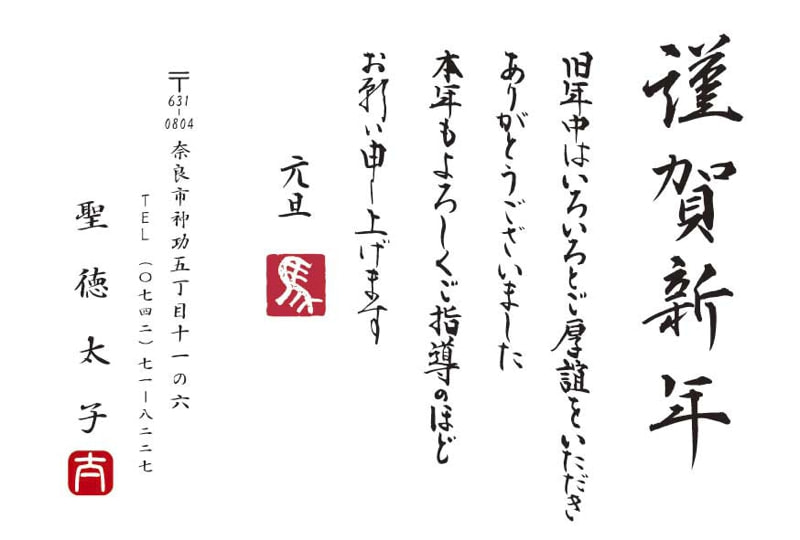 謹賀新年
旧年中はいろいろとご厚誼をいただき
ありがとうございました
本年もよろしくご指導のほど
お願い申し上げます
元旦
馬
〒631-0804 奈良市神功五丁目十一の六
TEL (〇七四二)七一ー八二二七
聖徳太子